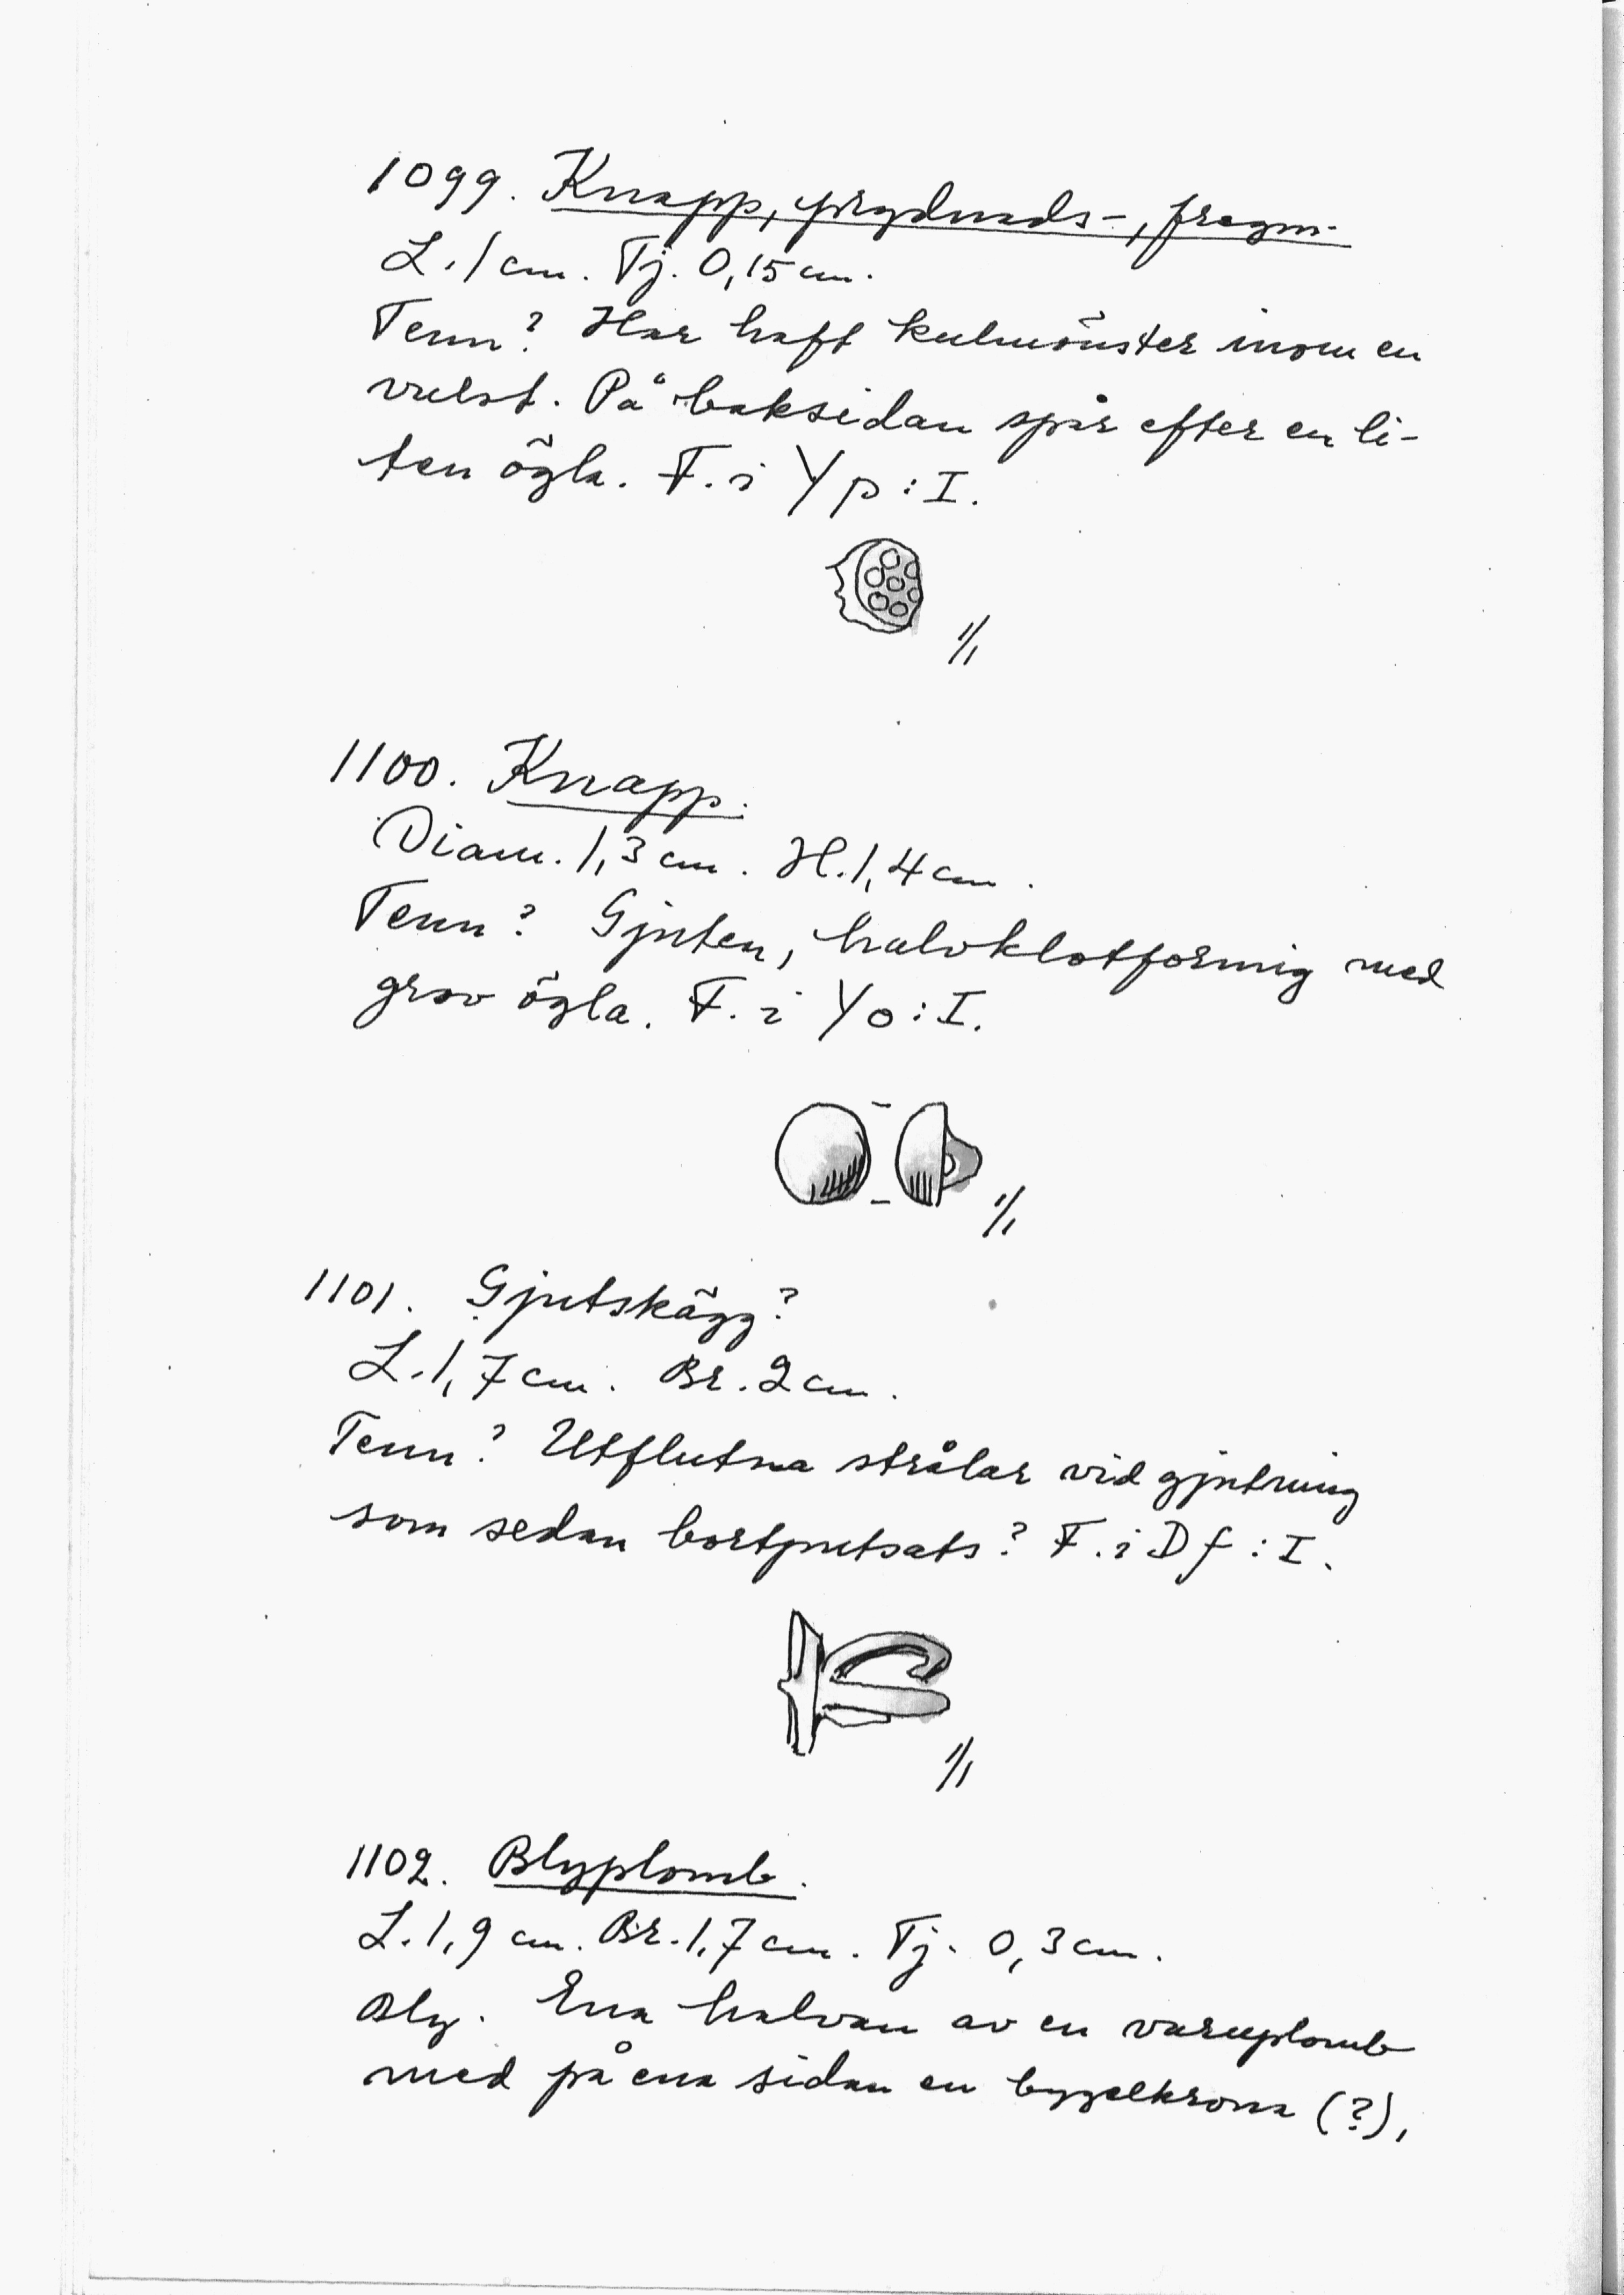 1099. Knapp, prydnads-, fragm.
L. 1 cm. Tj. 0,15 cm.
Tenn? Har haft kulmönster inom en
vulst. På baksidan spår efter en li-
ten ögla. F. i Yp: I.
1/1
1100. Knapp.
Diam. 1,3 cm. H. 1,4 cm.
Tenn? Gjuten, halvklotformig med
grov ögla. F. i Yo: I.
1/1
1101. Gjutskägg?
L. 1,7 cm. Br. 2 cm.
Tenn? Utflutna strålar vid gjutning
som sedan bortputsats? F. i Df: I.
1/1
1102. Blyplomb.
L. 1,9 cm. Br. 1,7 cm. Tj. 0,3 cm.
Bly. Ena halvan av en varuplomb
med på ena sidan en bygelkrona (?),